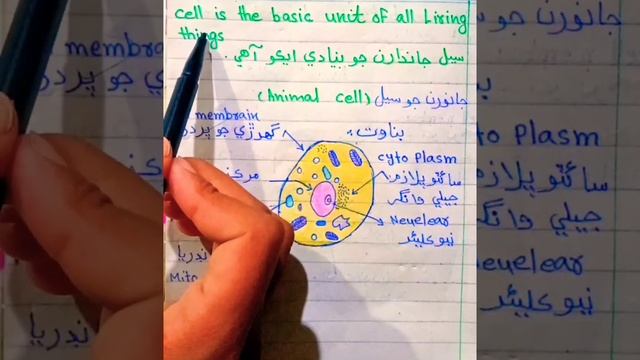 cell is the basic unit of all Living
things
سيل جاندارن جو بنيادي ايڪو آهي.
جانورن جو سيل (Animal cell)
بناوت:
membrain
گهرڙي جو پردو
Cyto Plasm
سائٽوپلازم
جيلي وانگر
مرڪز
Neuelear
نيوڪليئر
Mito